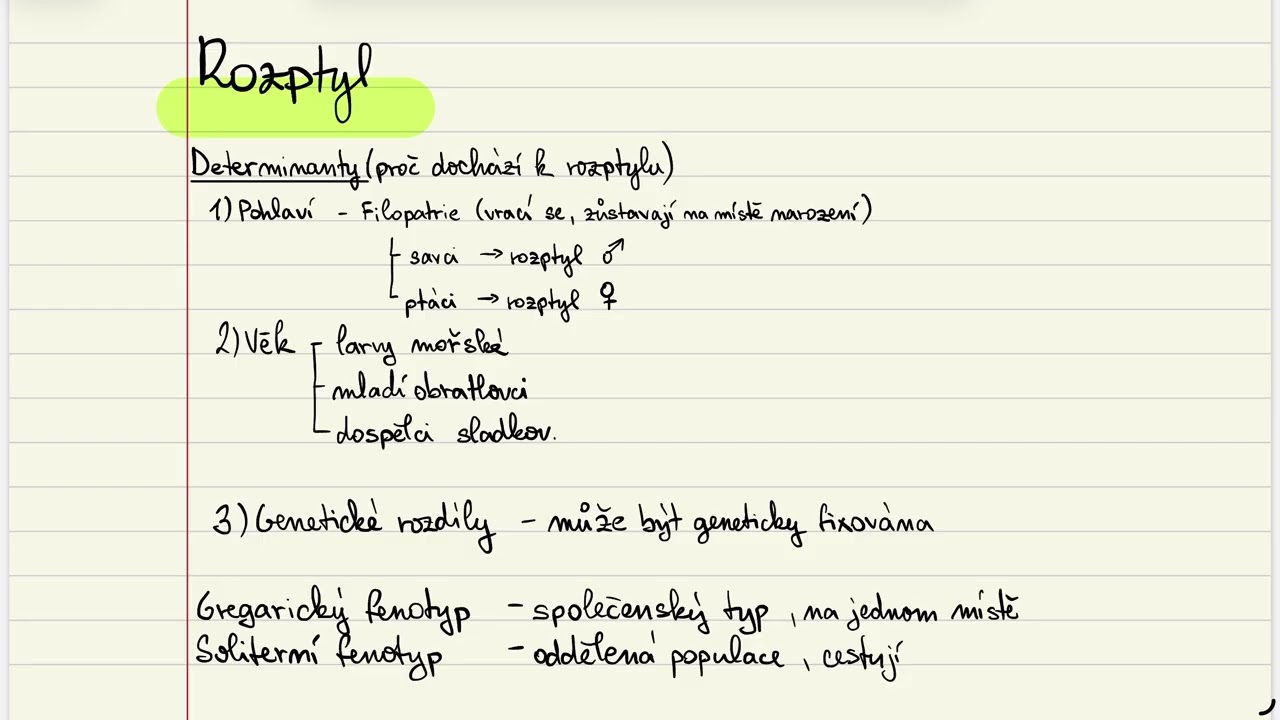 Rozptyl
Determinanty (proč dochází k rozptylu)
1) Pohlaví - Filopatrie (vrací se, zůstavají na místě narození)
savci → rozptyl ♂
ptáci → rozptyl ♀
2) Věk larvy mořské
mladí obratlovci
dospělci sladkov.
3) Genetické rozdíly - může být geneticky fixována
Gregarický fenotyp - společenský typ, na jednom místě
Soliterní fenotyp - oddělená populace, cestují